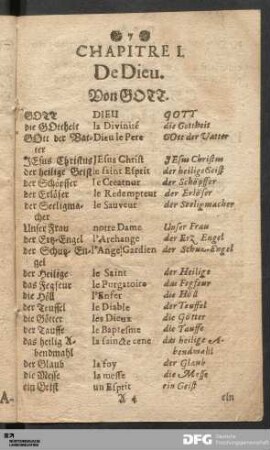 7
CHAPITRE I.
De Dieu.
Von GOTT.
GOTT DIEU GOTT
die GOttheit la Divinité die Gottheit
GOtt der Vat- Dieu le Pere GOtt der Vatter
ter
JEsus Christus JEsus Christ JEsus Christus
der heilige Geist le saint Esprit der heilige Geist
der Schöpffer le Createur der Schöpffer
der Erlöser le Redempteur der Erlöser
der Seeligma- le Sauveur der Seeligmacher
cher
Unser Frau notre Dame Unser Frau
der Ertz-Engel l'Archange der Erz Engel
der Schutz-En- l'Ange Gardien der Schuz-Engel
gel
der Heilige le Saint der Heilige
das Fegfeur le Purgatoire das Fegfeur
die Höll l'Enfer die Höll
der Teuffel le Diable der Teuffel
die Götter les Dieux die Götter
der Tauffe le Baptesme die Tauffe
das heilig A- la saincte cene das heilige A-
bendmahl bendmahl
der Glaub la foy der Glaub
die Messe la messe die Messe
ein Geist un Esprit ein Geist
A 4 ein
A-
DFG Deutsche
Forschungsgemeinschaft